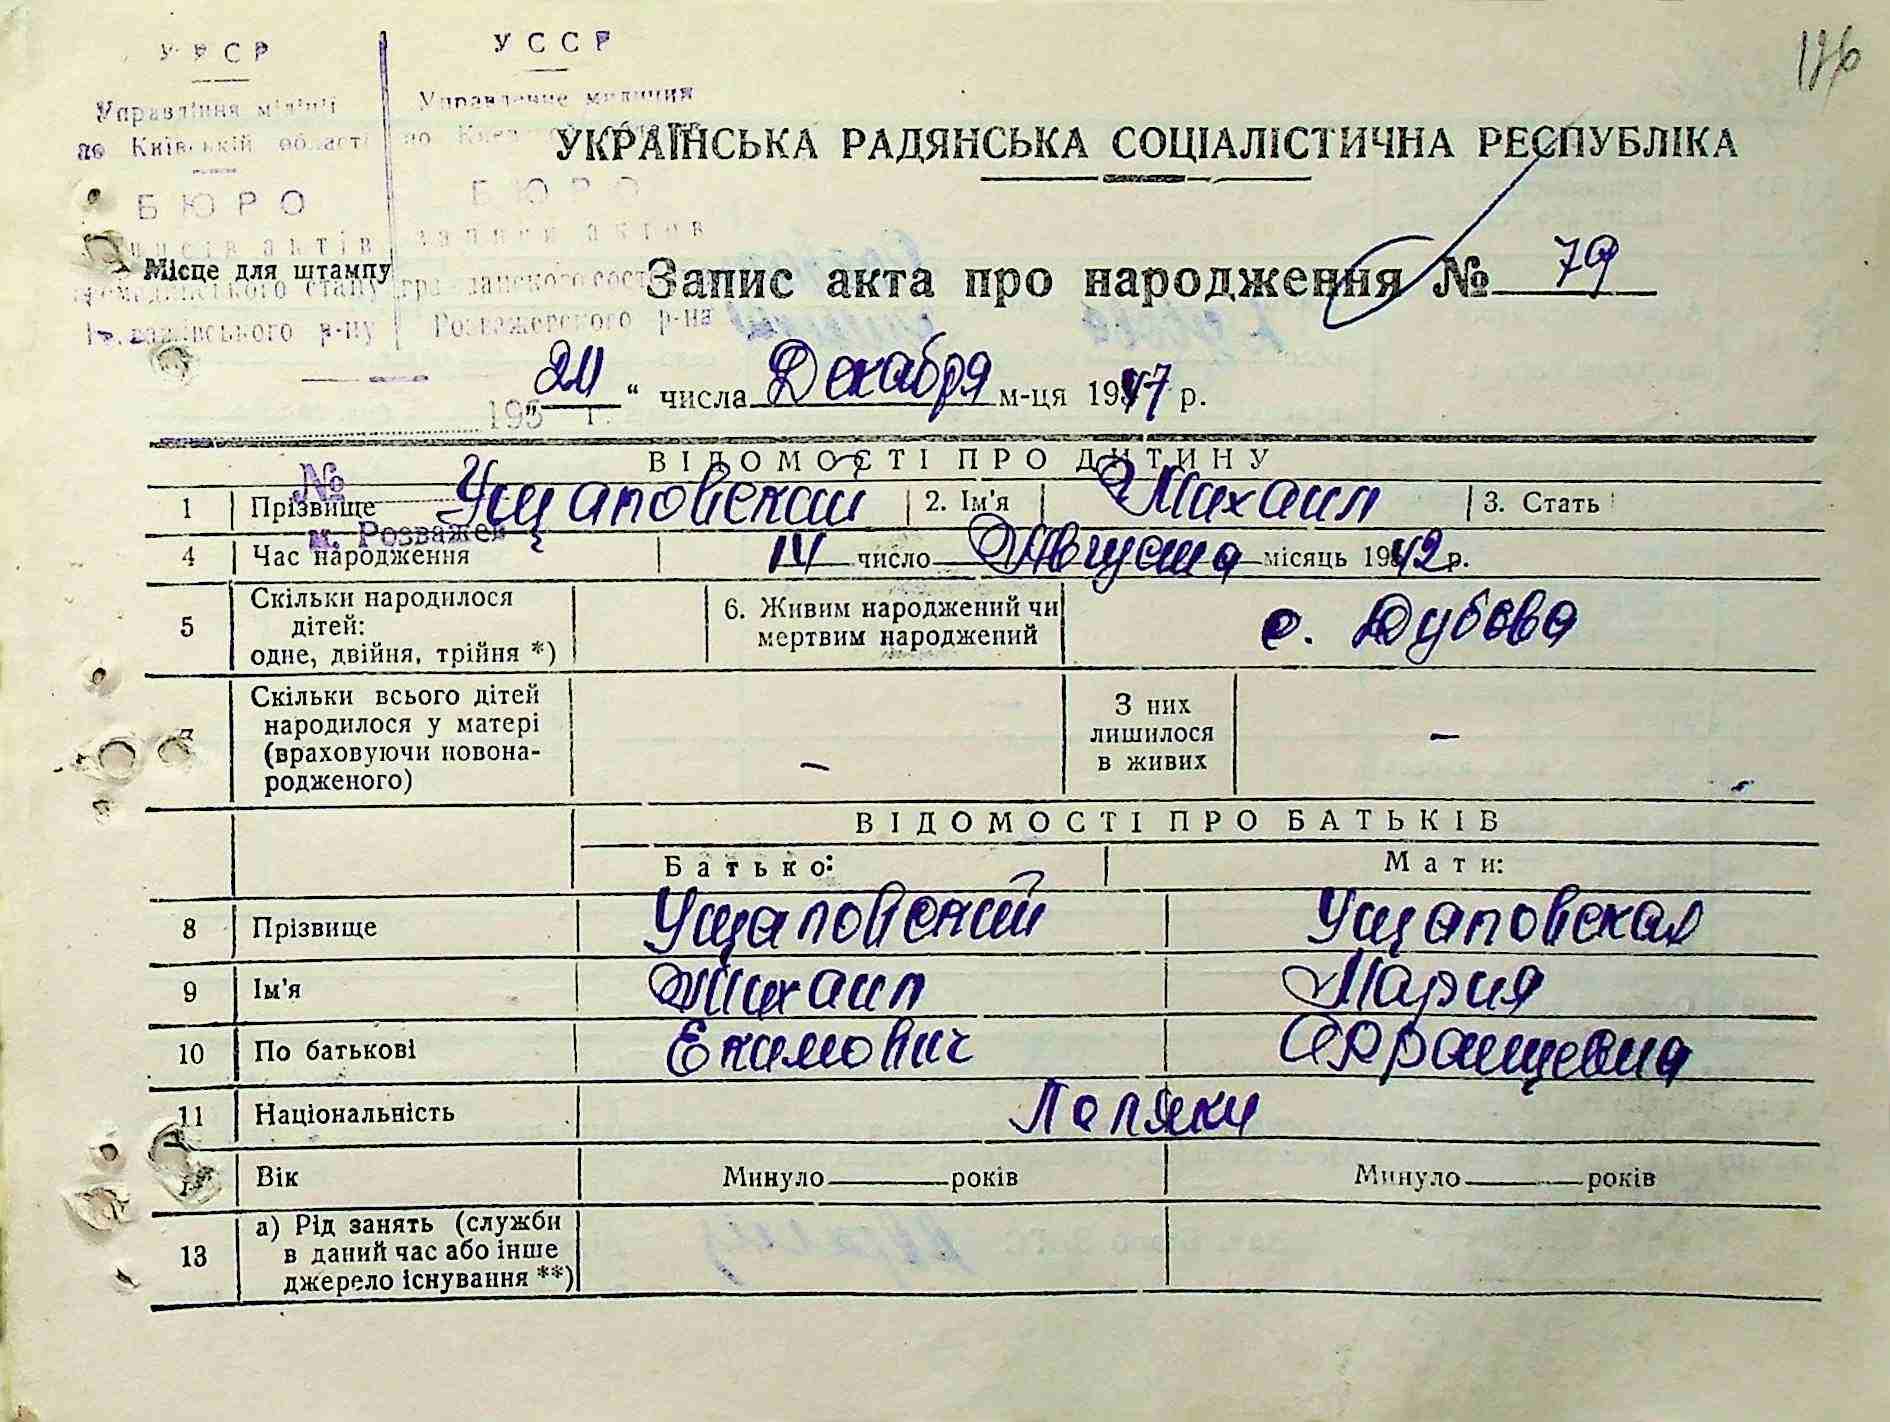 УРСР
Управління міліції
по Київській області
БЮРО
записів актів
громадянського стану
Розважівського р-ну
УССР
Управление милиции
по Киевской области
БЮРО
записи актов
гражданского сост
Розважевского р-на
195 г.
№
м. Розважев
Місце для штампу
УКРАЇНСЬКА РАДЯНСЬКА СОЦІАЛІСТИЧНА РЕСПУБЛІКА
Запис акта про народження № 79
„ “ числа Декабря м-ця 1947 р.
ВІДОМОСТІ ПРО ДИТИНУ
1 Прізвище Ущаповский 2. Ім'я Михаил 3. Стать
4 Час народження число Августа місяць 1942 р.
5 Скільки народилося
дітей:
одне, двійня, трійня *)
6. Живим народжений чи
мертвим народжений
с. Дубова
7 Скільки всього дітей
народилося у матері
(враховуючи новона-
родженого)
–
З них
лишилося
в живих
–
ВІДОМОСТІ ПРО БАТЬКІВ
Батько: Мати:
8 Прізвище Ущаповский Ущаповская
9 Ім'я Михаил Мария
10 По батькові Екимович Францевна
11 Національність Поляки
Вік Минуло ____ років Минуло ____ років
13 а) Рід занять (служби
в даний час або інше
джерело існування **)